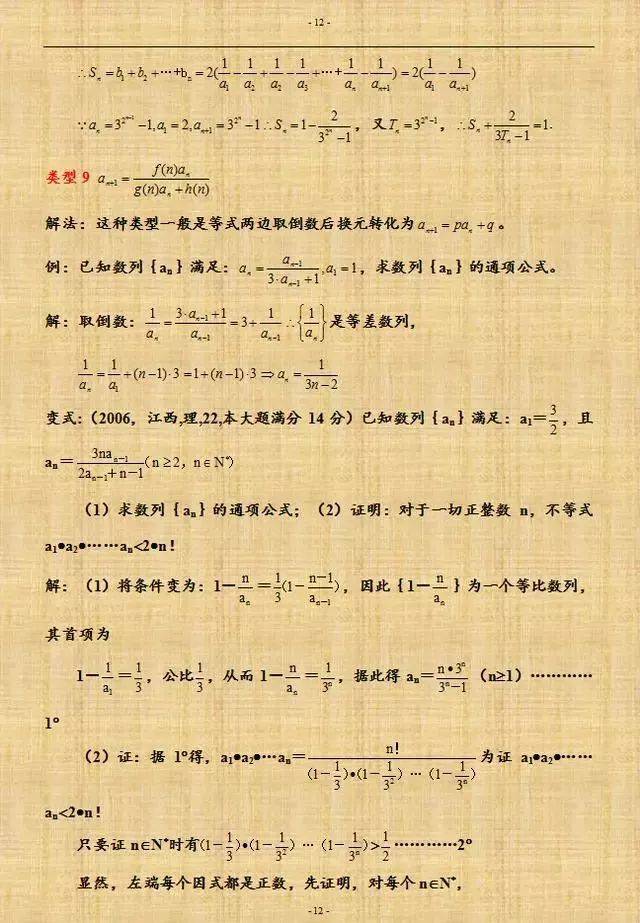 - 12 -
∴Sₙ=b₁+b₂+…+bₙ=2(1/a₁-1/a₂+1/a₂-1/a₃+…+1/aₙ-1/aₙ₊₁)=2(1/a₁-1/aₙ₊₁)
∵aₙ=3^(2^(n-1))-1,a₁=2,aₙ₊₁=3^(2^n)-1∴Sₙ=1-2/(3^(2^n)-1)，又Tₙ=3^(2^n-1)，∴Sₙ+2/(3Tₙ-1)=1.
类型9 aₙ₊₁=f(n)aₙ/(g(n)aₙ+h(n))
解法：这种类型一般是等式两边取倒数后换元转化为aₙ₊₁=paₙ+q。
例：已知数列{aₙ}满足：aₙ=aₙ₋₁/(3·aₙ₋₁+1),a₁=1，求数列{aₙ}的通项公式。
解：取倒数：1/aₙ=(3·aₙ₋₁+1)/aₙ₋₁=3+1/aₙ₋₁ ∴{1/aₙ}是等差数列，
1/aₙ=1/a₁+(n-1)·3=1+(n-1)·3⇒aₙ=1/(3n-2)
变式:（2006，江西,理,22,本大题满分14分）已知数列{aₙ}满足：a₁＝3/2，且
aₙ＝3naₙ₋₁/(2aₙ₋₁+n-1)(n≥2，n∈N*)
（1）求数列{aₙ}的通项公式；（2）证明：对于一切正整数n，不等式
a₁•a₂•……aₙ<2•n！
解：（1）将条件变为：1－n/aₙ＝1/3(1-(n-1)/aₙ₋₁)，因此{1－n/aₙ}为一个等比数列，
其首项为
1－1/a₁＝1/3，公比1/3，从而1－n/aₙ＝1/3ⁿ，据此得aₙ＝n•3ⁿ/(3ⁿ-1)（n≥1）…………
1°
（2）证：据1°得，a₁•a₂•…aₙ＝n！/((1-1/3)•(1-1/3²) … (1-1/3ⁿ))为证a₁•a₂•……
aₙ<2•n！
只要证n∈N*时有(1-1/3)•(1-1/3²) … (1-1/3ⁿ)>1/2…………2°
显然，左端每个因式都是正数，先证明，对每个n∈N*，
- 12 -